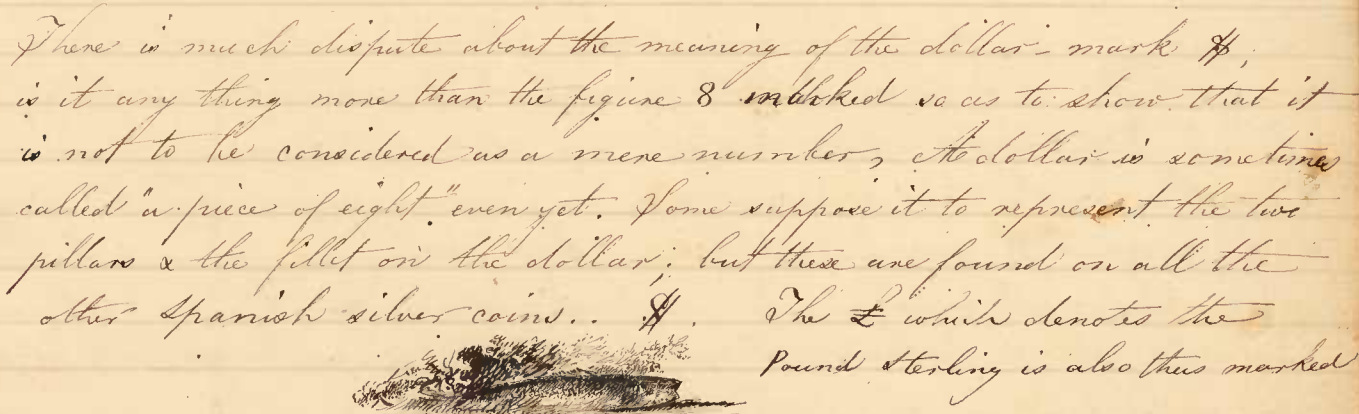 There is much dispute about the meaning of the dollar-mark $,
is it any thing more than the figure 8 marked so as to show that it
is not to be considered as a mere number, A dollar is sometimes
called "a piece of eight" even yet. Some suppose it to represent the two
pillars & the fillet on the dollar; but these are found on all the
other Spanish silver coins.. $. The £ which denotes the
Pound sterling is also thus marked